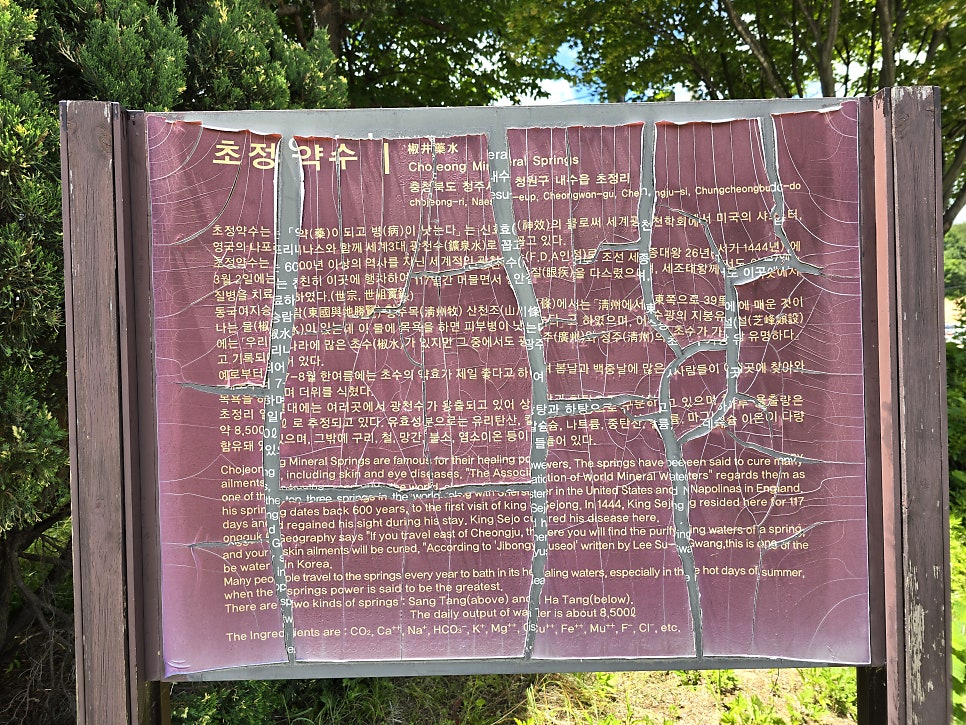 초정약수
椒井藥水
Chojeong Mineral Springs
충청북도 청주시 청원구 내수읍 초정리
chojeong-ri, Naesu-eup, Cheongwon-gu, Cheongju-si, Chungcheongbuk-do
초정약수는 「약(藥)이 되고 병(病)이 낫는다」는 신효(神效)의 물로써 세계광천학회에서 미국의 샤스터,
영국의 나포리나스와 함께 세계3대 광천수(鑛泉水)로 꼽고 있다.
초정약수는 600년 이상의 역사를 지닌 세계적인 광천수(F.D.A인정)로 조선 세종대왕 26년(서기 1444년)에
3월 2일에는 친히 이곳에 행차하여 117일간 머물면서 안질(眼疾)을 다스렸으며, 세조대왕께서도 이곳에서
질병을 치료하였다.(世宗, 世祖實錄)
동국여지승람(東國輿地勝覽) 청주목(淸州牧) 산천조(山川條)에서는 「淸州에서 東쪽으로 39里에 매운 것이
나는 물(椒水)이 있는데 이 물에 목욕을 하면 피부병이 낫는다」고 하였으며, 이수광의 지봉유설(芝峰類說)
에는 「우리나라에 많은 초수(椒水)가 있지만 그 중에서도 광주(廣州)와 청주(淸州)의 초수가 가장 유명하다」
고 기록되어 있다.
예로부터 7-8월 한여름에는 초수의 약효가 제일 좋다고 하여 복날과 백중날에 많은 사람들이 이곳에 찾아와
목욕을 하며 더위를 식혔다.
초정리 일대에는 여러곳에서 광천수가 용출되고 있어 상탕과 하탕으로 구분하고 있으며 하루 용출량은
약 8,500ℓ로 추정되고 있다. 유효성분으로는 유리탄산, 칼슘, 나트륨, 중탄산, 칼륨, 마그네슘 이온이 다량
함유돼 있으며, 그밖에 구리, 철, 망간, 불소, 염소이온 등이 들어 있다.
Chojeong Mineral Springs are famous for their healing powers. The springs have been said to cure many
ailments, including skin and eye diseases. "The Association of World Mineral Waters" regards them as
one of the top three springs in the world, along with Shanster in the United States and Napolinas in England.
his spring dates back 600 years, to the first visit of king Sejong. In 1444, King Sejong resided here for 117
days and regained his sight during his stay. King Sejo cured his disease here.
ongguk Geography says "If you travel east of Cheongju, there you will find the purifying waters of a spring,
and your skin ailments will be cured, "According to 'Jibongyuseol' written by Lee Su-kwang,this is one of the
be water in Korea.
Many people travel to the springs every year to bath in its healing waters, especially in the hot days of summer,
when the springs power is said to be the greatest.
There are two kinds of springs : Sang Tang(above) and Ha Tang(below).
The daily output of water is about 8,500ℓ
The Ingredients are : CO₂, Ca⁺⁺, Na⁺, HCO₃⁻, K⁺, Mg⁺⁺, Cu⁺⁺, Fe⁺⁺, Mu⁺⁺, F⁻, Cl⁻, etc.